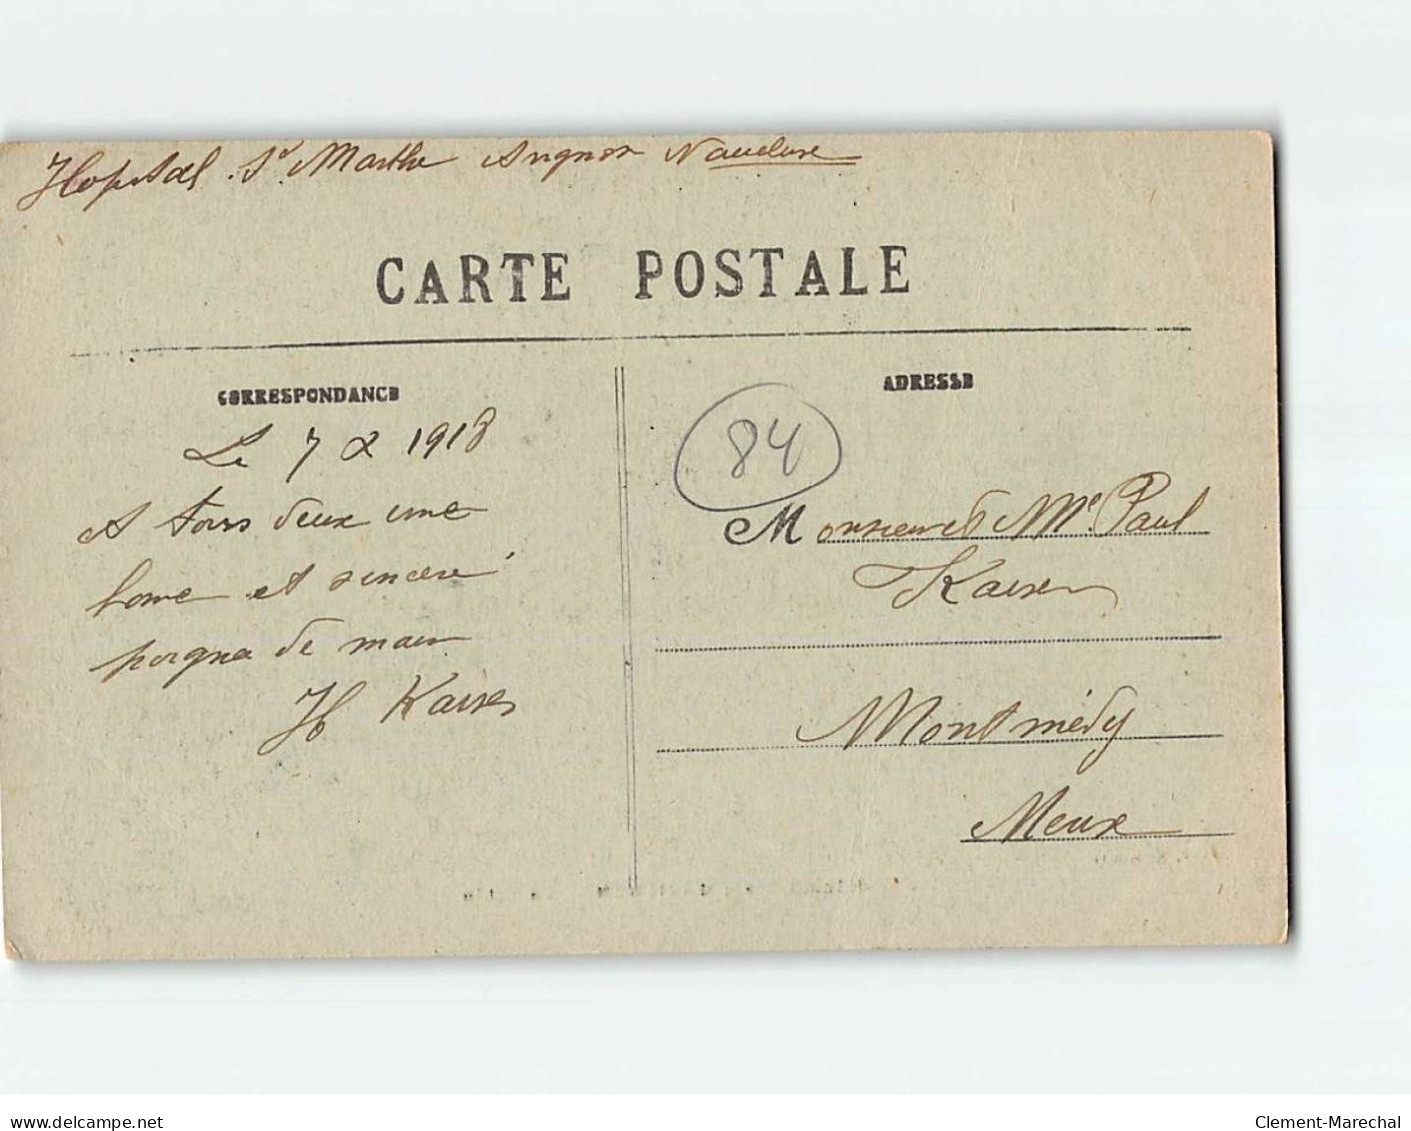 Hopital St Marthe Avignon Vaucluse
CARTE POSTALE
CORRESPONDANCE
Le 7 X 1918
A tous deux une
bonne et sincère
poignée de main
H Kaiser
ADRESSE
84
Monsieur et Me Paul
Kaiser
Montmédy
Meuse
delcampe.net
Clement-Marechal